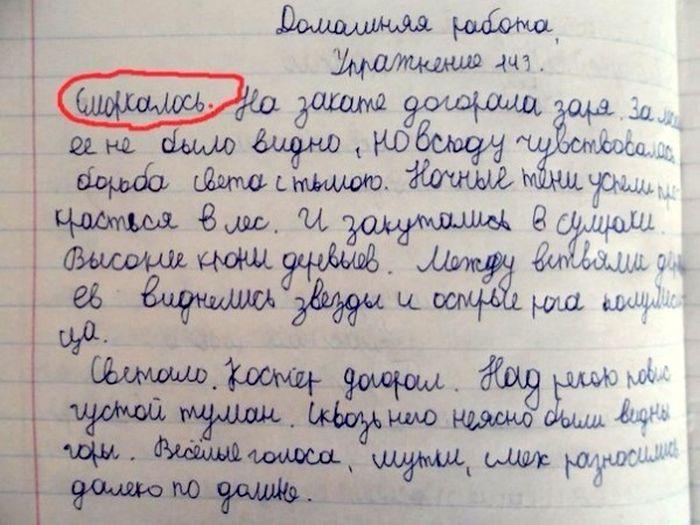 Домашняя работа,
Упражнение 143.
Сморкалось. На закате догорала заря. За
ее не было видно, но всюду чувствовалась
борьба света с тьмою. Ночные тени успели про
красться в лес. И закутались в сумраки.
Высокие кроны деревьев. Между ветвями дерев
ев виднелись звезды и острые рога полумеся
ца.
Светало. Костёр догорал. Над рекою повис
густой туман. Сквозь него неясно были видны
горы. Весёлые голоса, шутки, смех разносились
далеко по долине.